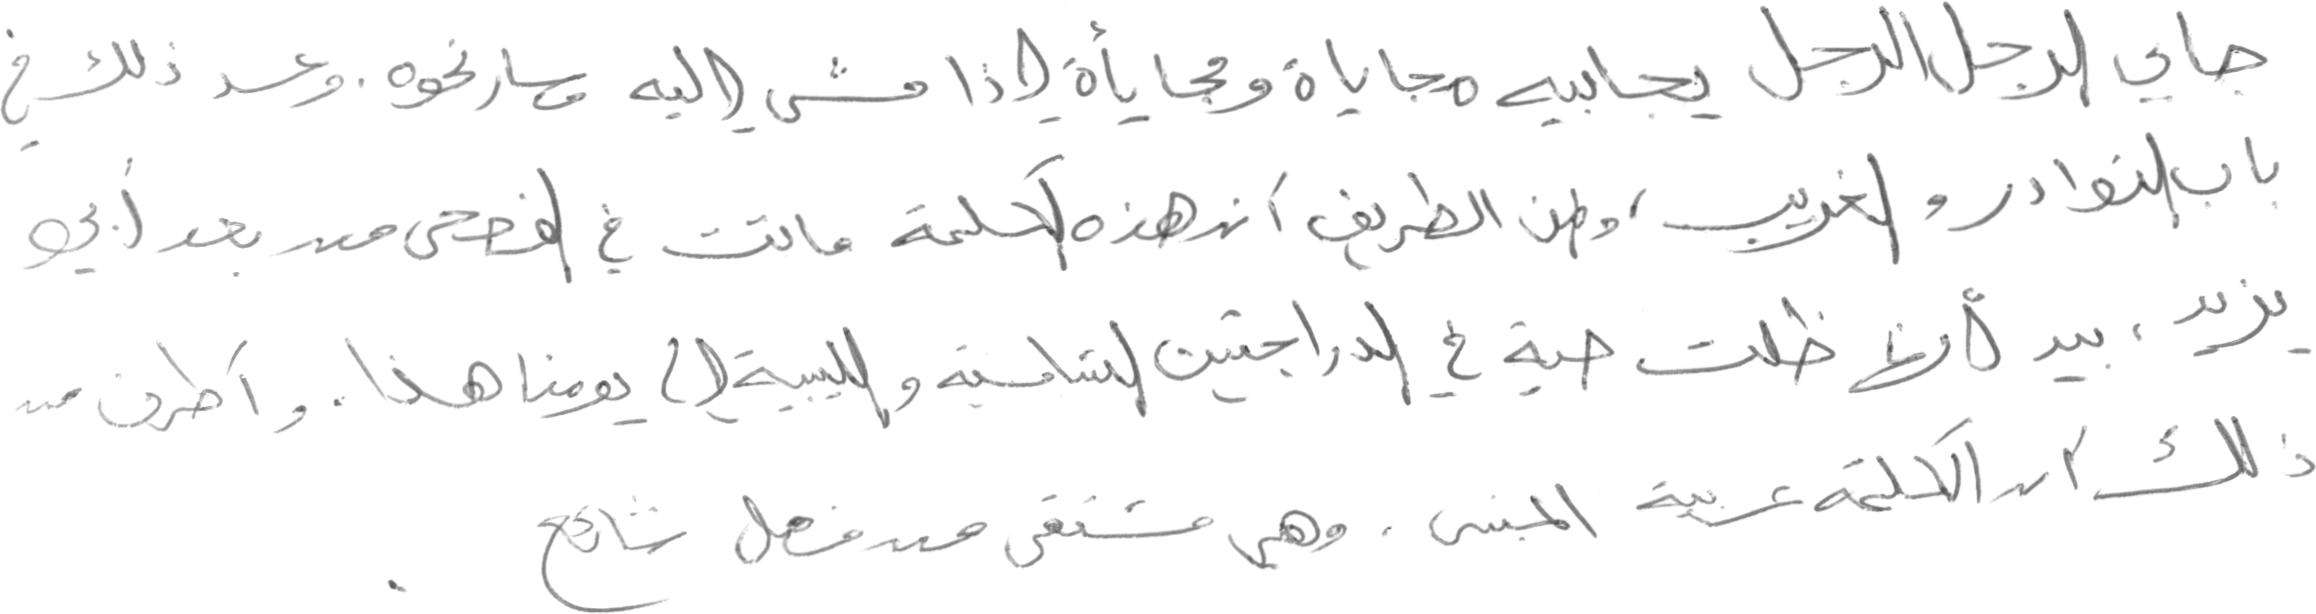 جايى الرجل الرجل يجاييه مجاياة ومجايأة إذا مشى إليه وسار نحوه. وعد ذلك في
باب النوادر والغريب، ومن الطريف أن هذه الكلمة ماتت في الفصحى من بعد أبي
يزيد، بيد أنها ظلت حية في الدراجتين الشامية والليبية إلى يومنا هذا. وأطرف من
ذلك أن الكلمة عربية المبنى. وهي مشتقى من فعل شائع.